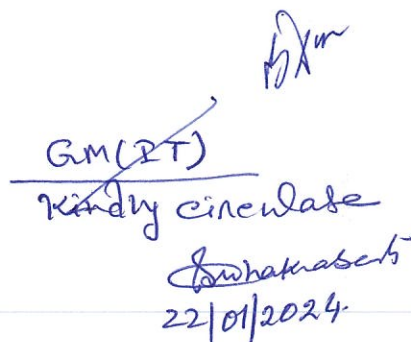 GM(IT)
Kindly circulate
22/01/2024.